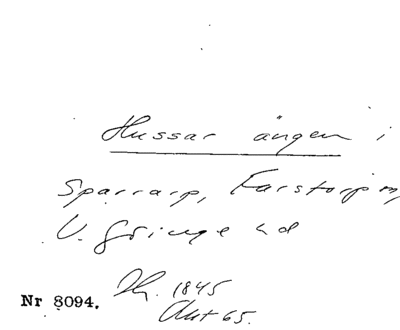 Hussar ängen i
Sparrarp, Farstorp sn,
V. Göinge hd
Nr 8094. 1845
Akt 65.